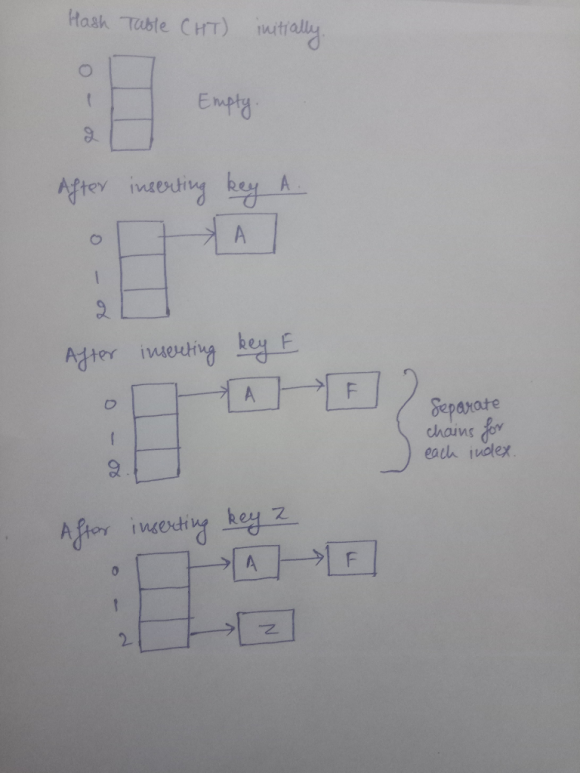 Hash Table (HT) initially.
0
1
2
Empty.
After inserting key A.
0
A
1
2
After inserting key F
0
A
F
1
2.
Separate
chains for
each index.
After inserting key Z
0
A
F
1
2
Z